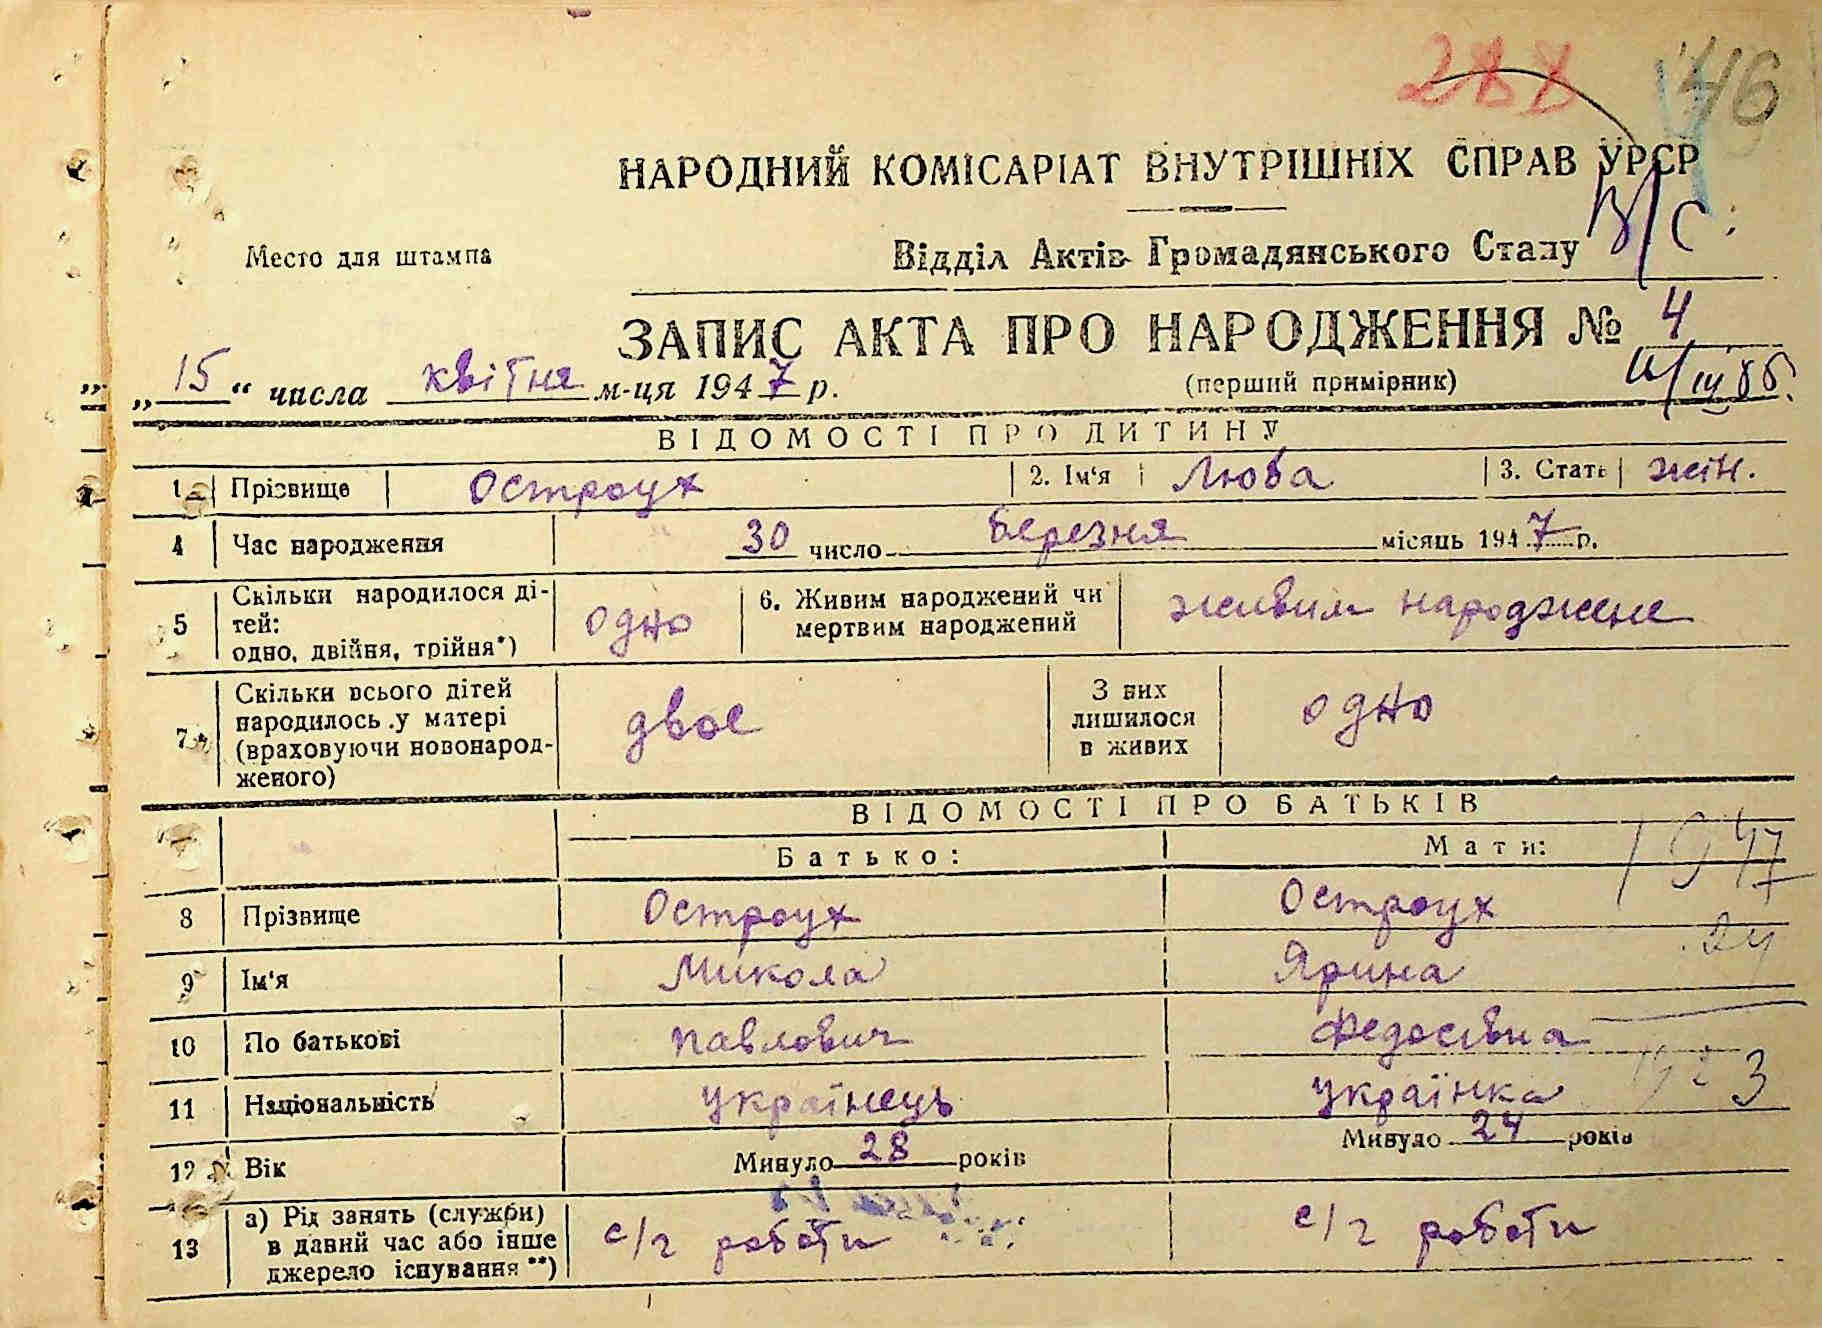 288 46
НАРОДНИЙ КОМІСАРІАТ ВНУТРІШНІХ СПРАВ УРСР
В/С:
Место для штампа
Відділ Актів Громадянського Стану
ЗАПИС АКТА ПРО НАРОДЖЕННЯ № 4
„15“ числа квітня м-ця 1947 р. (перший примірник)
ВІДОМОСТІ ПРО ДИТИНУ
1 Прізвище Остроух 2. Ім'я Люба 3. Стать жін.
4 Час народження 30 число березня місяць 1947 р.
5 Скільки народилося ді-
тей:
одно, двійня, трійня*) одно 6. Живим народжений чи
мертвим народжений живим народжене
7 Скільки всього дітей
народилось у матері
(враховуючи новонарод-
женого) двоє З них
лишилося
в живих одно
ВІДОМОСТІ ПРО БАТЬКІВ
Батько: Мати: 1947
8 Прізвище Остроух Остроух
24
9 Ім'я Микола Ярина
10 По батькові Павлович Федосівна
1923
11 Національність українець українка
12 Вік Минуло 28 років Минуло 24 років
13 а) Рід занять (служби)
в даний час або інше
джерело існування **) с/г роботи с/г роботи